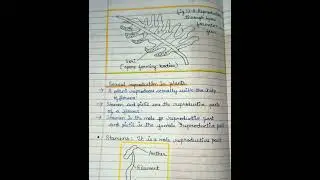 Sori
(spore forming bodies)
Sexual reproduction in plants
→ A plant reproduces sexually with the help
of flower.
→ Stamen and pistil are the reproductive parts
of a flower.
→ Stamen is the male reproductive part
and pistil is the female reproductive part
• Stamens: It is a male reproductive part
Anther
Filament